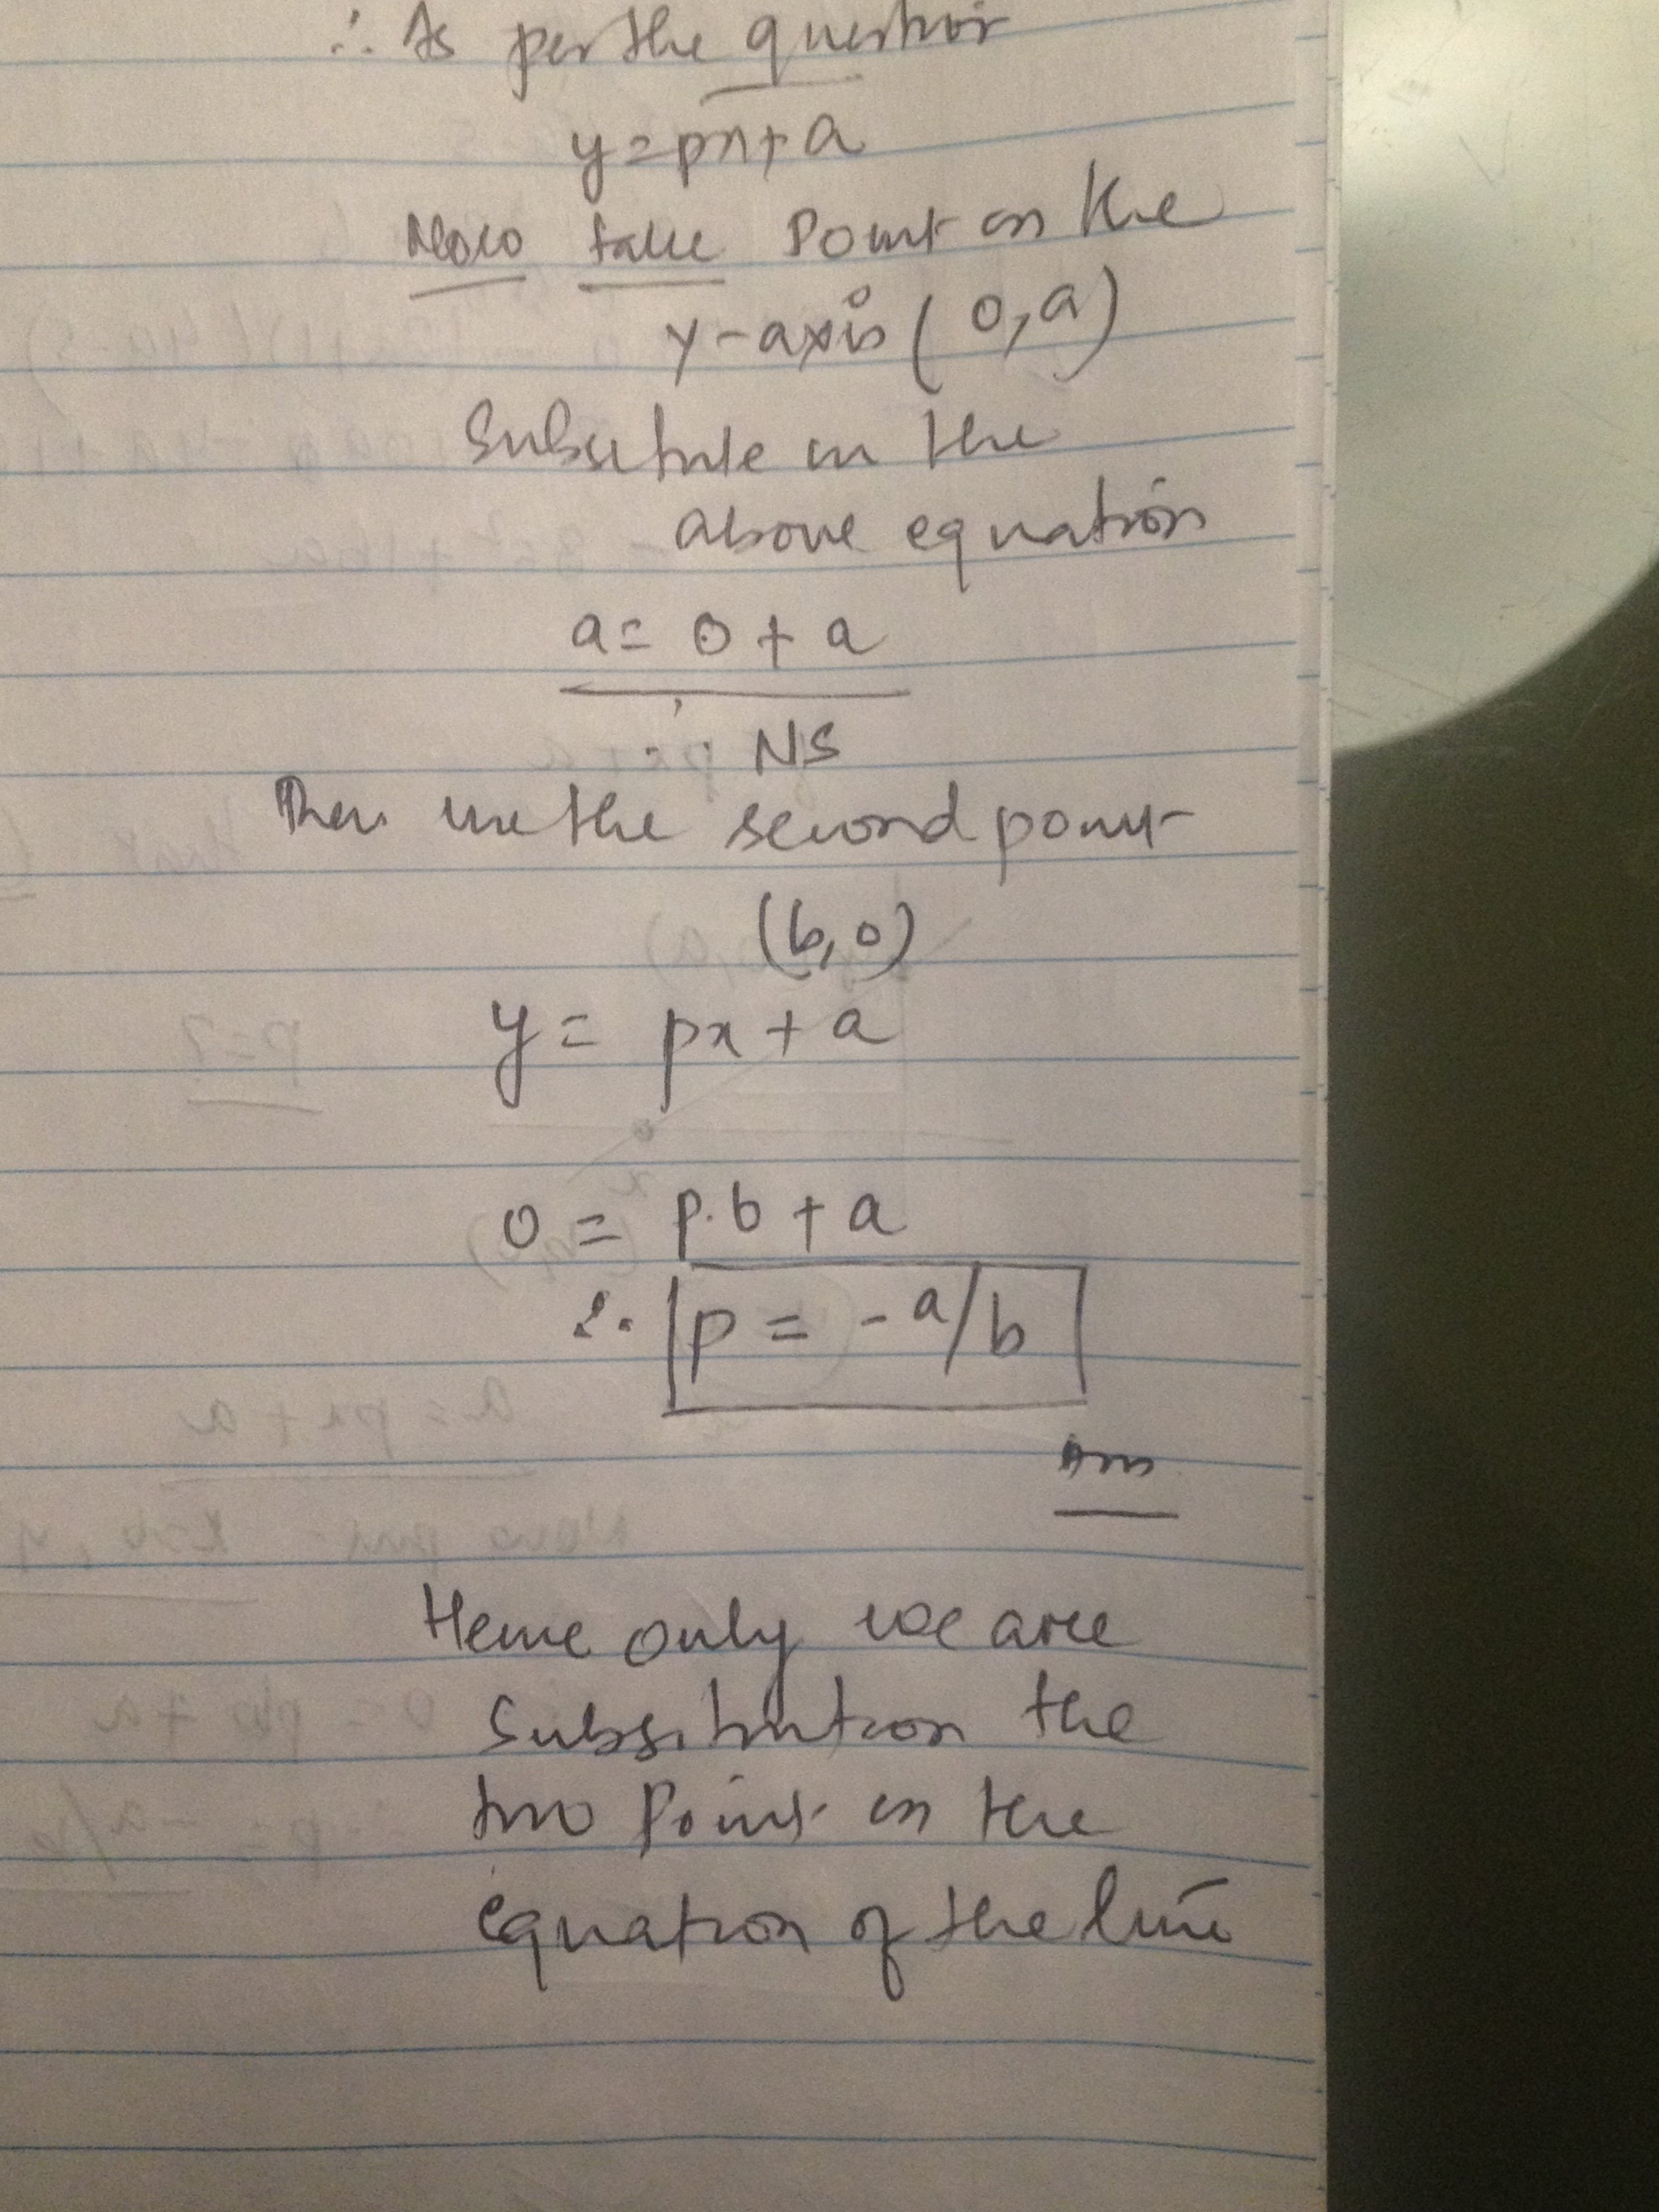 ∴ As per the question
y = px + a
Now take Point on the
y-axis (0, a)
Subsitute in the
above equation
a = 0 + a
∴ NS
Then use the second point
(b, 0)
y = px + a
0 = p.b + a
∴ p = -a/b
Ans
Hence only we are
Subsitution the
two Point in the
equation of the line